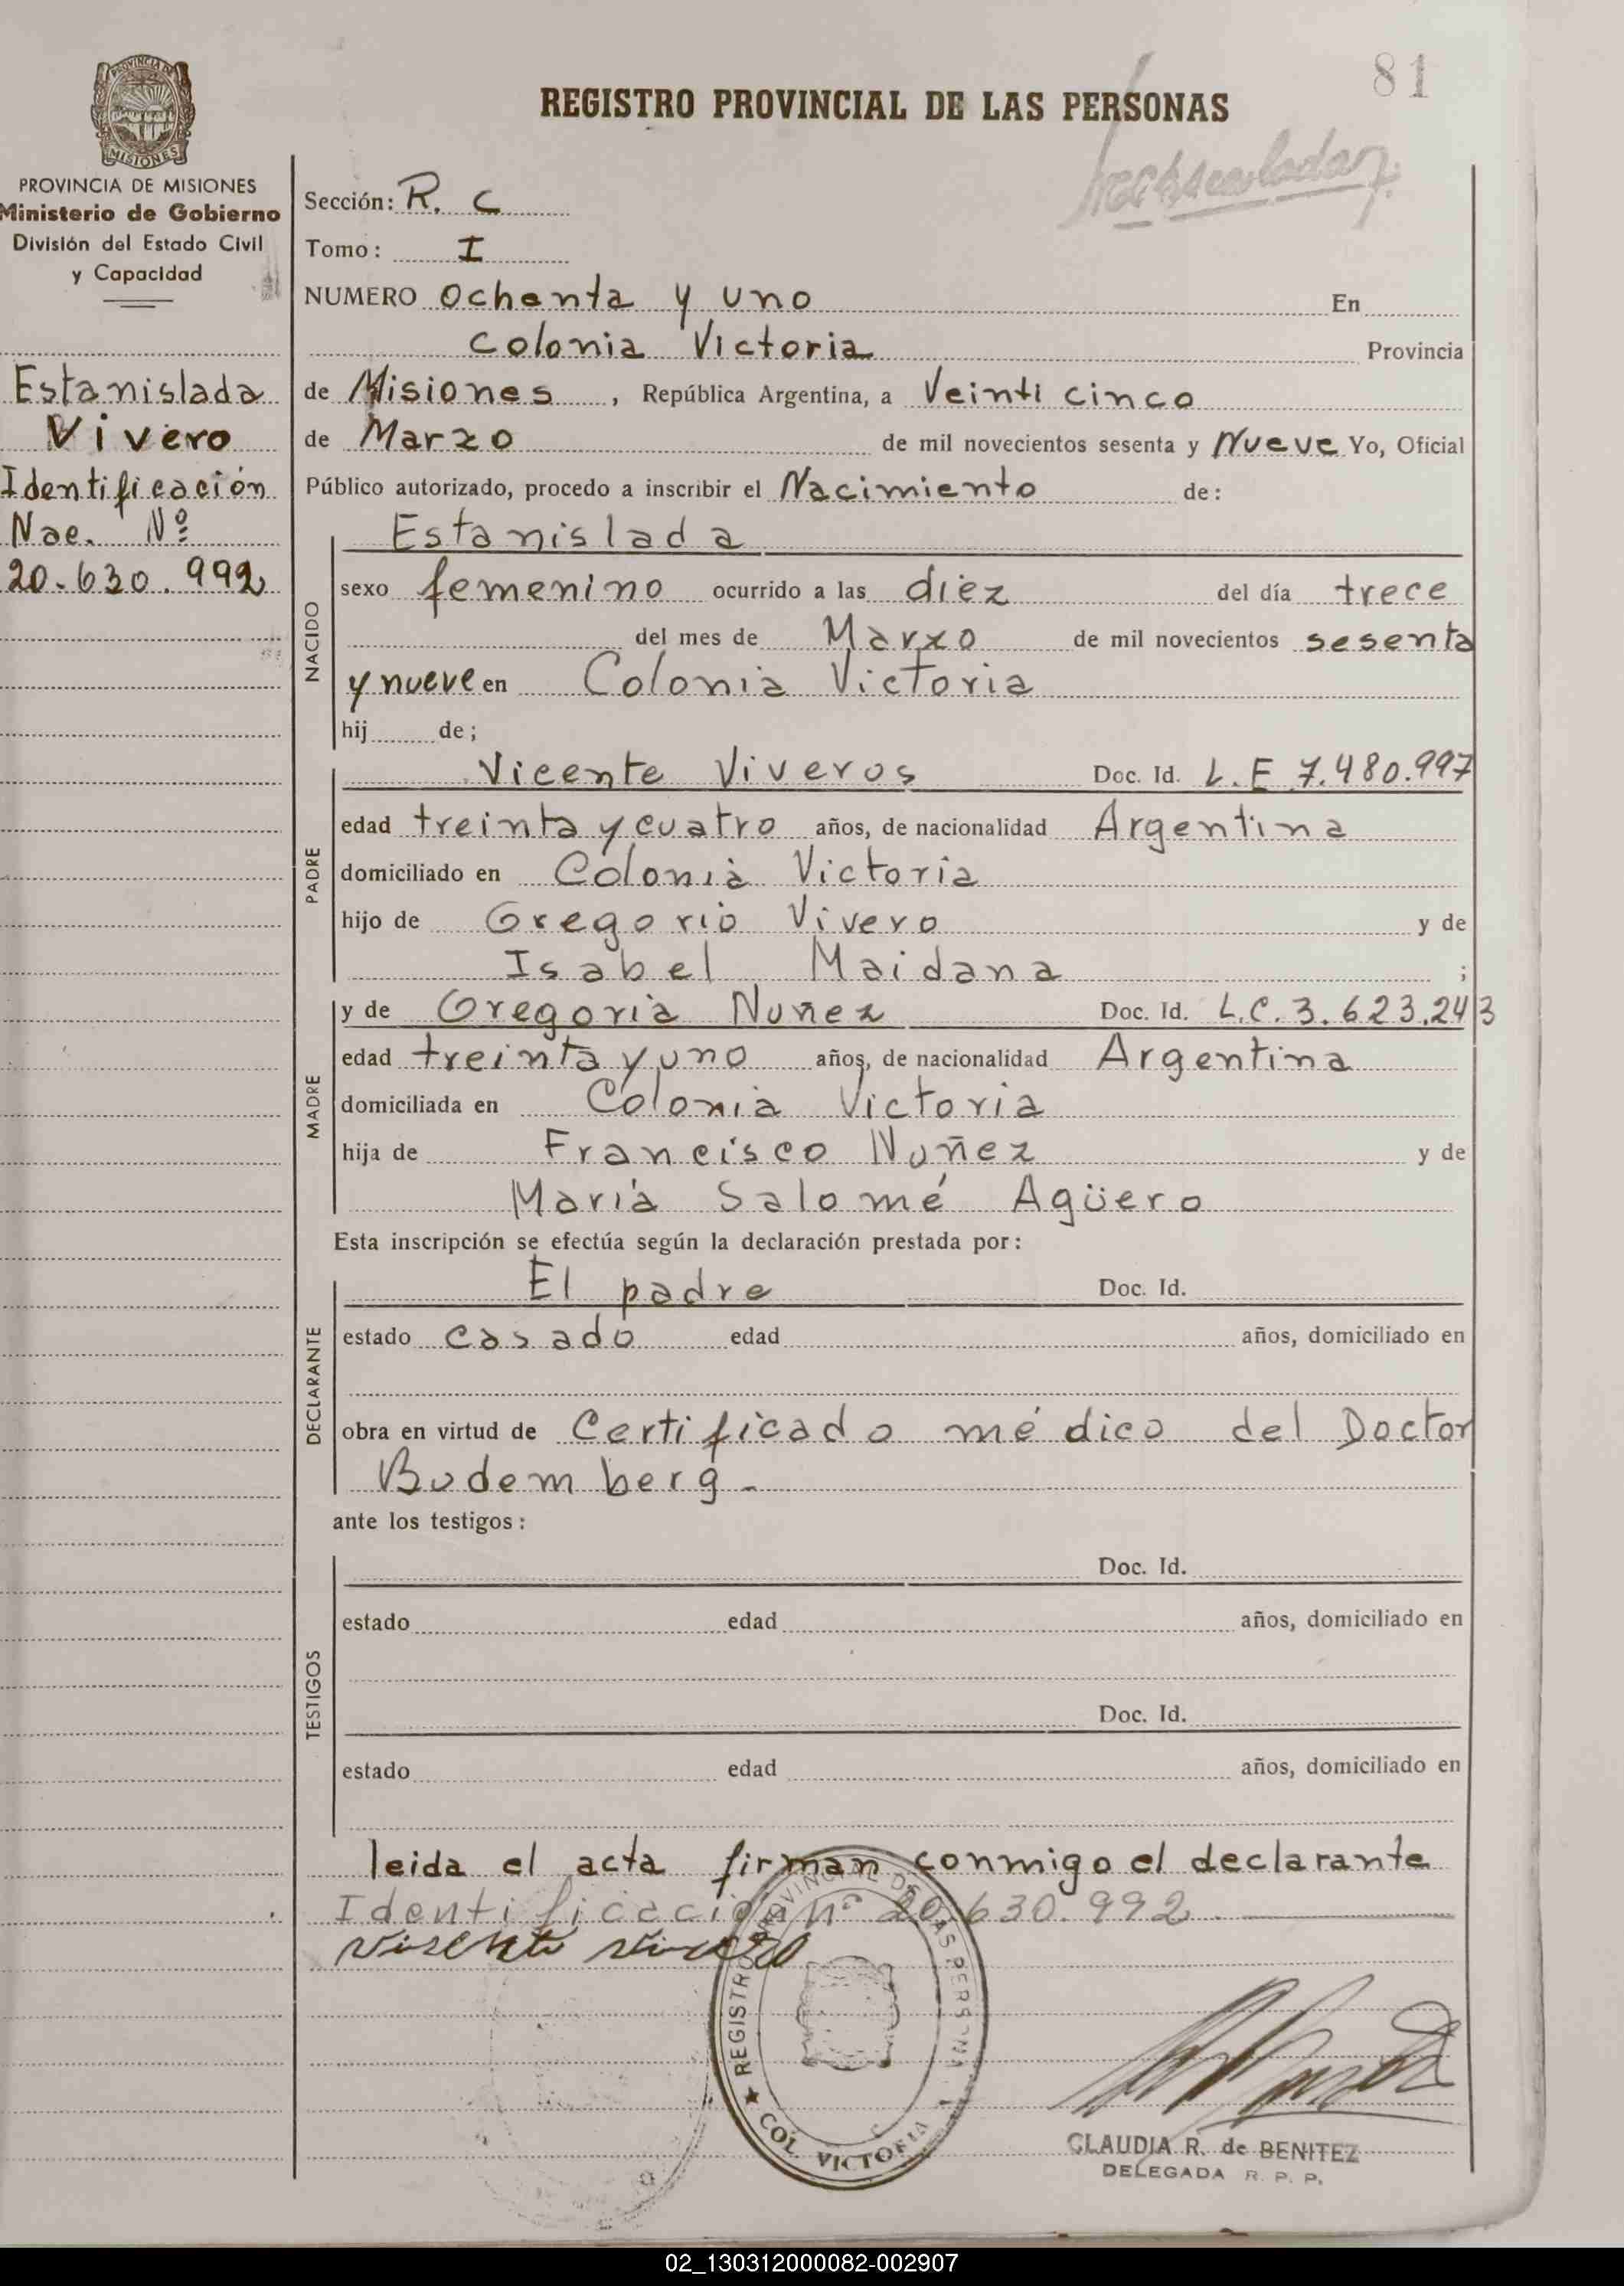 81
REGISTRO PROVINCIAL DE LAS PERSONAS
PROVINCIA DE MISIONES
Ministerio de Gobierno
División del Estado Civil
y Capacidad
Estanislada
Vivero
Identificación
Nac. Nº
20.630.992
Sección: R. C
Tomo: I
NUMERO Ochenta y uno En
Colonia Victoria Provincia
de Misiones, República Argentina, a Veinti cinco
de Marzo de mil novecientos sesenta y Nueve Yo, Oficial
Público autorizado, procedo a inscribir el Nacimiento de:
NACIDO
Estanislada
sexo femenino ocurrido a las diez del día trece
del mes de Marzo de mil novecientos sesenta
y nueve en Colonia Victoria
hij de;
PADRE
Vicente Viveros Doc. Id. L.E 7.480.997
edad treinta y cuatro años, de nacionalidad Argentina
domiciliado en Colonia Victoria
hijo de Gregorio Vivero y de
Isabel Maidana ;
MADRE
y de Gregoria Nuñez Doc. Id. L.C. 3.623.243
edad treinta y uno años, de nacionalidad Argentina
domiciliada en Colonia Victoria
hija de Francisco Nuñez y de
María Salomé Agüero
Esta inscripción se efectúa según la declaración prestada por:
DECLARANTE
El padre Doc. Id.
estado casado edad años, domiciliado en
obra en virtud de Certificado médico del Doctor
Budemberg.
ante los testigos:
TESTIGOS
Doc. Id.
estado edad años, domiciliado en
Doc. Id.
estado edad años, domiciliado en
leida el acta firman conmigo el declarante
Identificación nº 20.630.992.
REGISTRO PROVINCIAL DE LAS PERSONAS
COL. VICTORIA
CLAUDIA R. de BENITEZ
DELEGADA R. P. P.
02_130312000082-002907